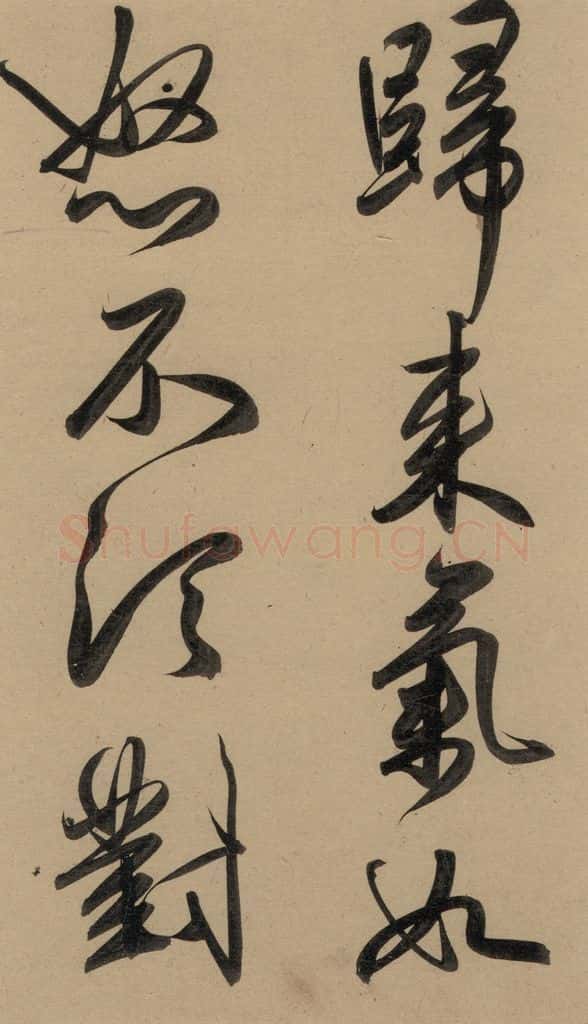 歸來氣如
怒不對
Shufawang.CN